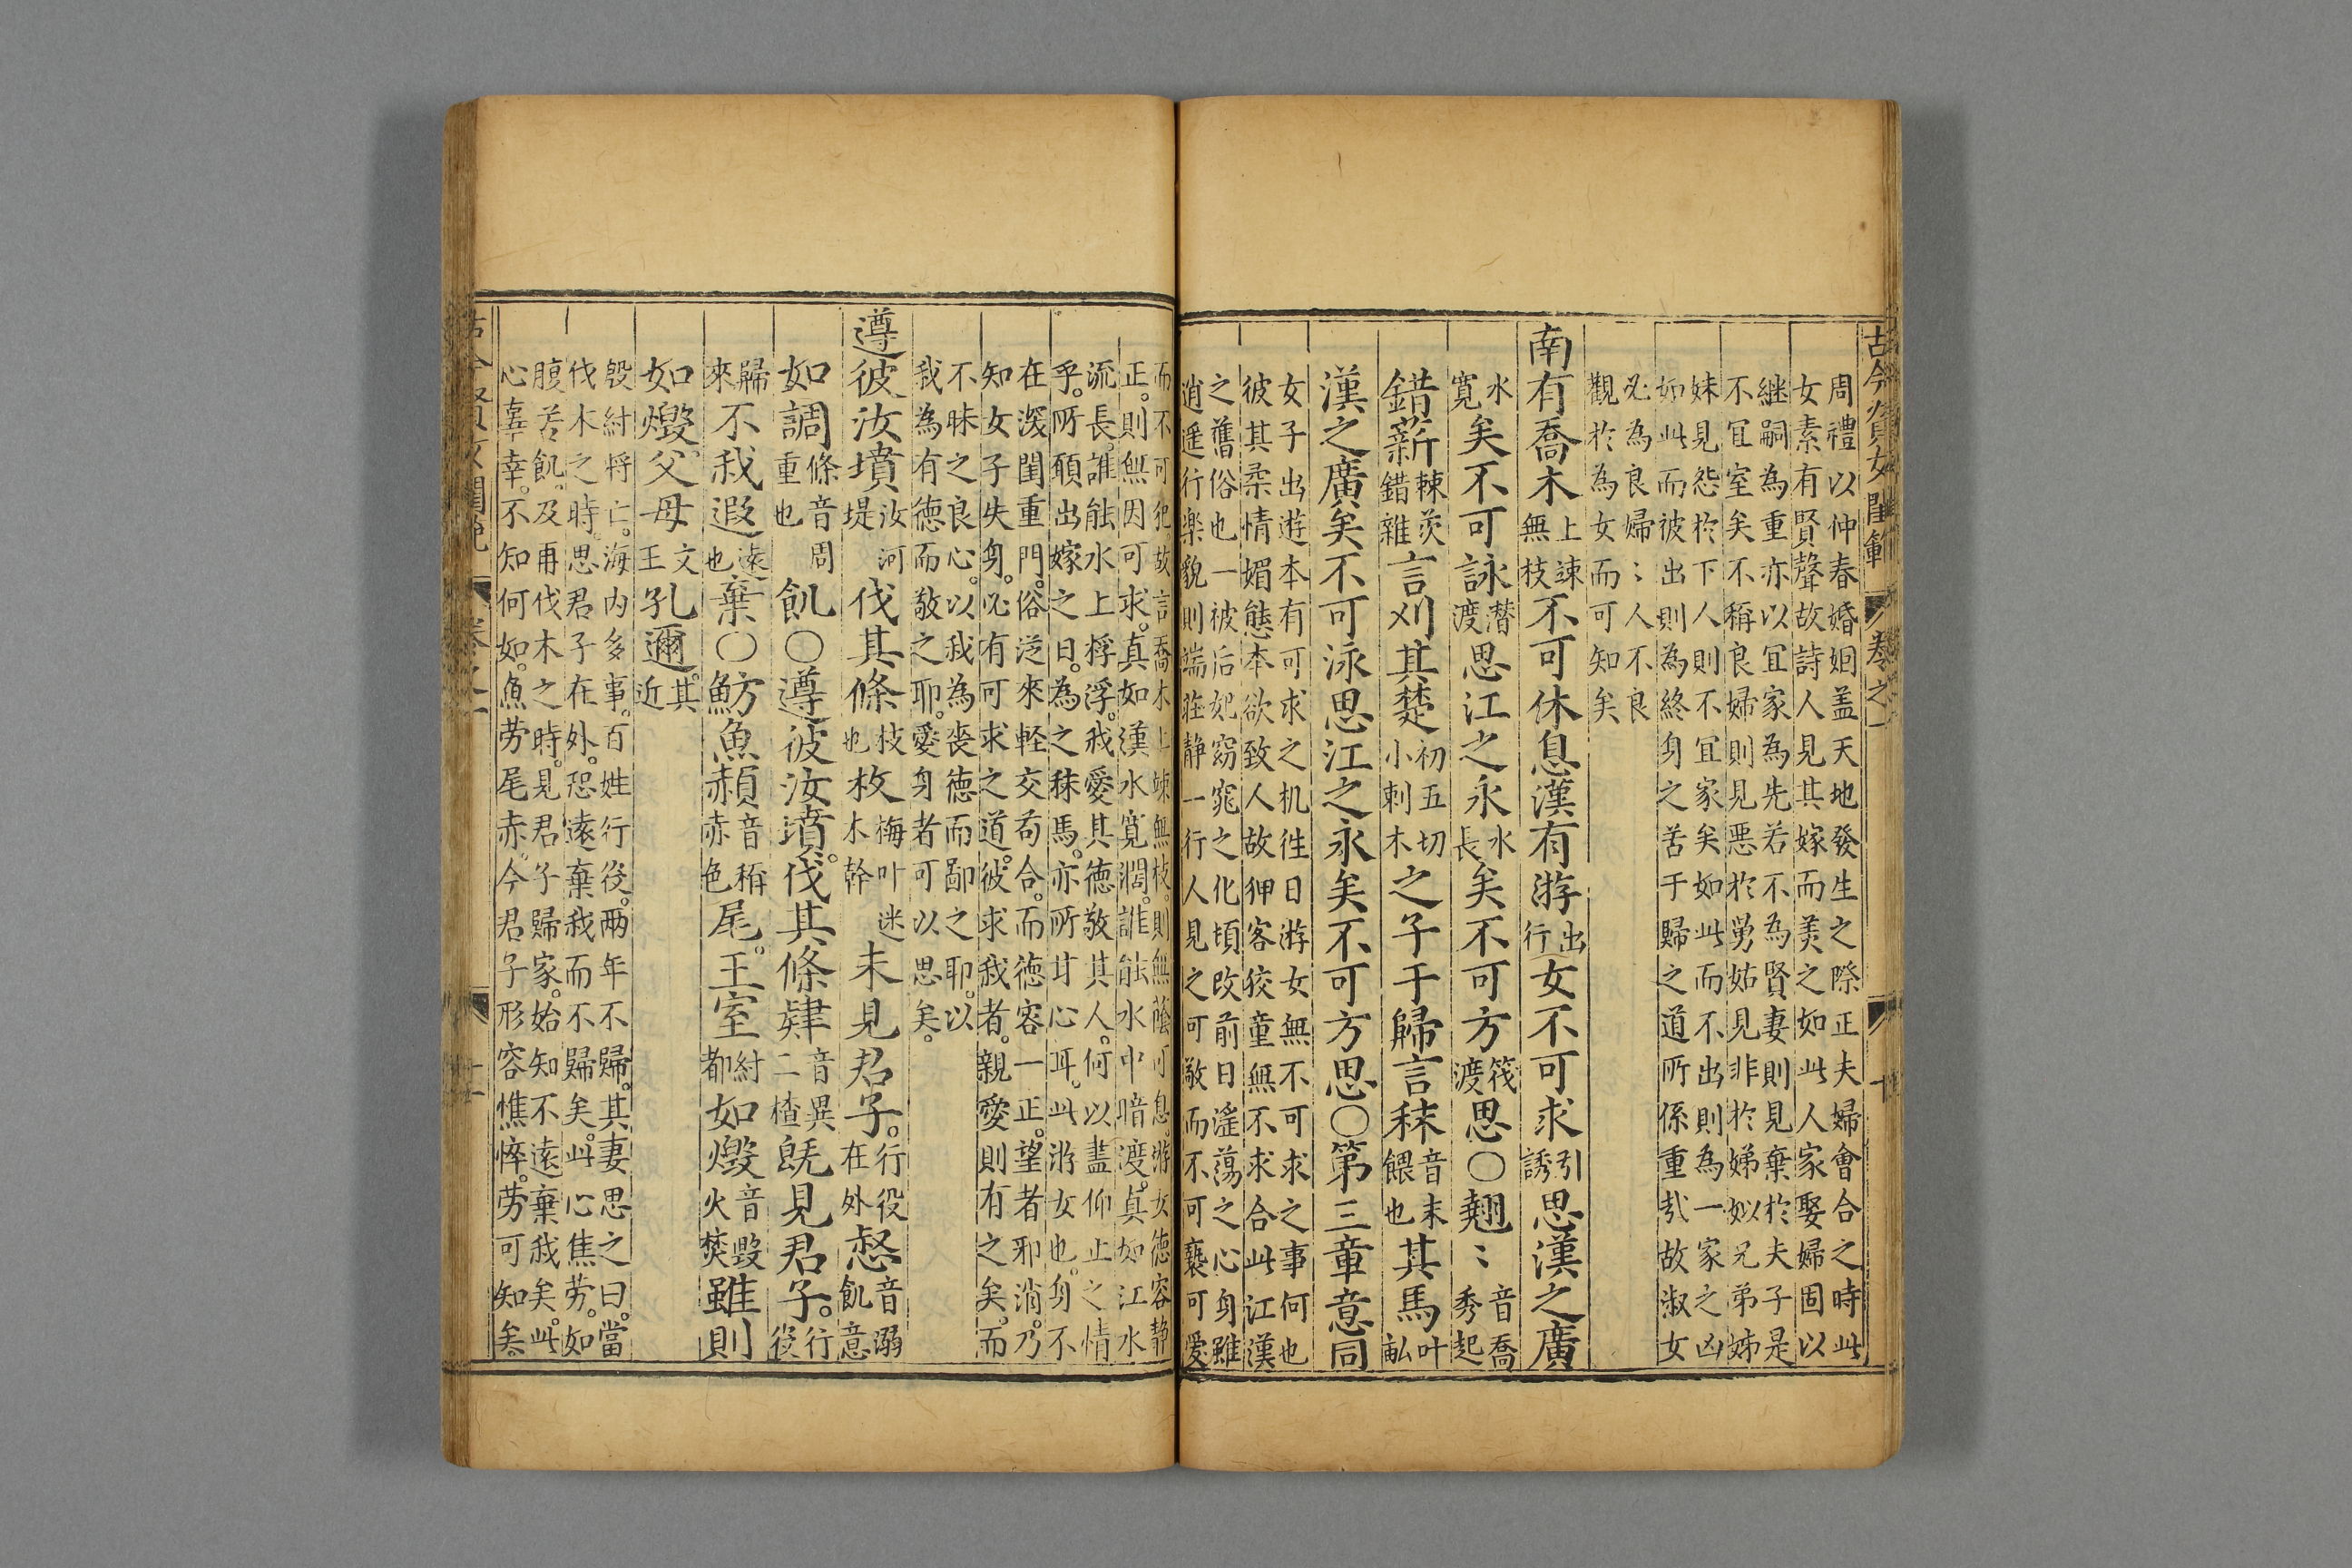 古今賢女閨範 卷之一 十
周禮以仲春婚姻盖天地發生之際正夫婦會合之時此
女素有賢聲故詩人見其嫁而羙之如此人家娶婦固以
継嗣為重亦以冝家為先若不為賢妻則見棄於夫子是
不冝室矣不稱良婦則見惡於舅姑見非於娣姒兄弟姊
妹見怨於下人則不冝家矣如此而不出則為一家之凶
如此而彼出則為終身之苦于歸之道所係重㢤故淑女
必為良婦〻人不良
觀於為女而可知矣
南有喬木上竦無枝不可休息漢有游出行女不可求引誘思漢之廣
水寛矣不可詠潜渡思江之永水長矣不可方筏渡思〇翹〻音喬秀起
錯薪棘茨錯雜言刈其楚初五切小刺木之子于歸言秣音末餵也其馬叶畆
漢之廣矣不可泳思江之永矣不可方思〇第三章意同
女子出遊本有可求之机徃日游女無不可求之事何也
彼其柔情媚態本欲致人故狎客狡童無不求合此江漢
之舊俗也一被后妃窈窕之化頃改前日滛蕩之心身雖
逍遥行樂貌則端莊静一行人見之可敬而不可褻可愛
而不可犯故言喬木上竦無枝則無蔭可息游女徳容静
正。則無因可求。真如漢水寛濶。誰能水中暗渡。真如江水
流長。誰能水上桴浮。我愛其徳敬其人。何以盡仰止之情
乎。所願出嫁之日。為之秣馬。亦所甘心耳。此游女也。身不
在深閨重門。俗泛來軽交苟合。而徳容一正。望者邪消。乃
知女子失身。必有可求之道。彼求我者。親愛則有之矣。而
不昧之良心。以我為喪徳而鄙之耶。以
我為有徳而敬之耶。愛身者可以思矣。
遵彼汝墳汝河堤伐其條枝也枚梅叶迷木幹未見君子。行役在外惄音溺飢意
如調條音周重也飢〇遵彼汝墳。伐其條肄音異二楂既見君子。行役
歸來不我遐遠也棄〇魴魚赬音稱赤色尾。王室紂都如燬音毀火焚雖則
如燬。父母文王孔邇。其近
殷紂將亡。海内多事。百姓行役。两年不歸。其妻思之曰。當
伐木之時。思君子在外。恐遠棄我而不歸矣。此心焦劳。如
腹若飢。及再伐木之時。見君子歸家。始知不遠棄我矣。此
心辜幸。不知何如。魚劳尾赤。今君子形容憔悴。劳可知矣。